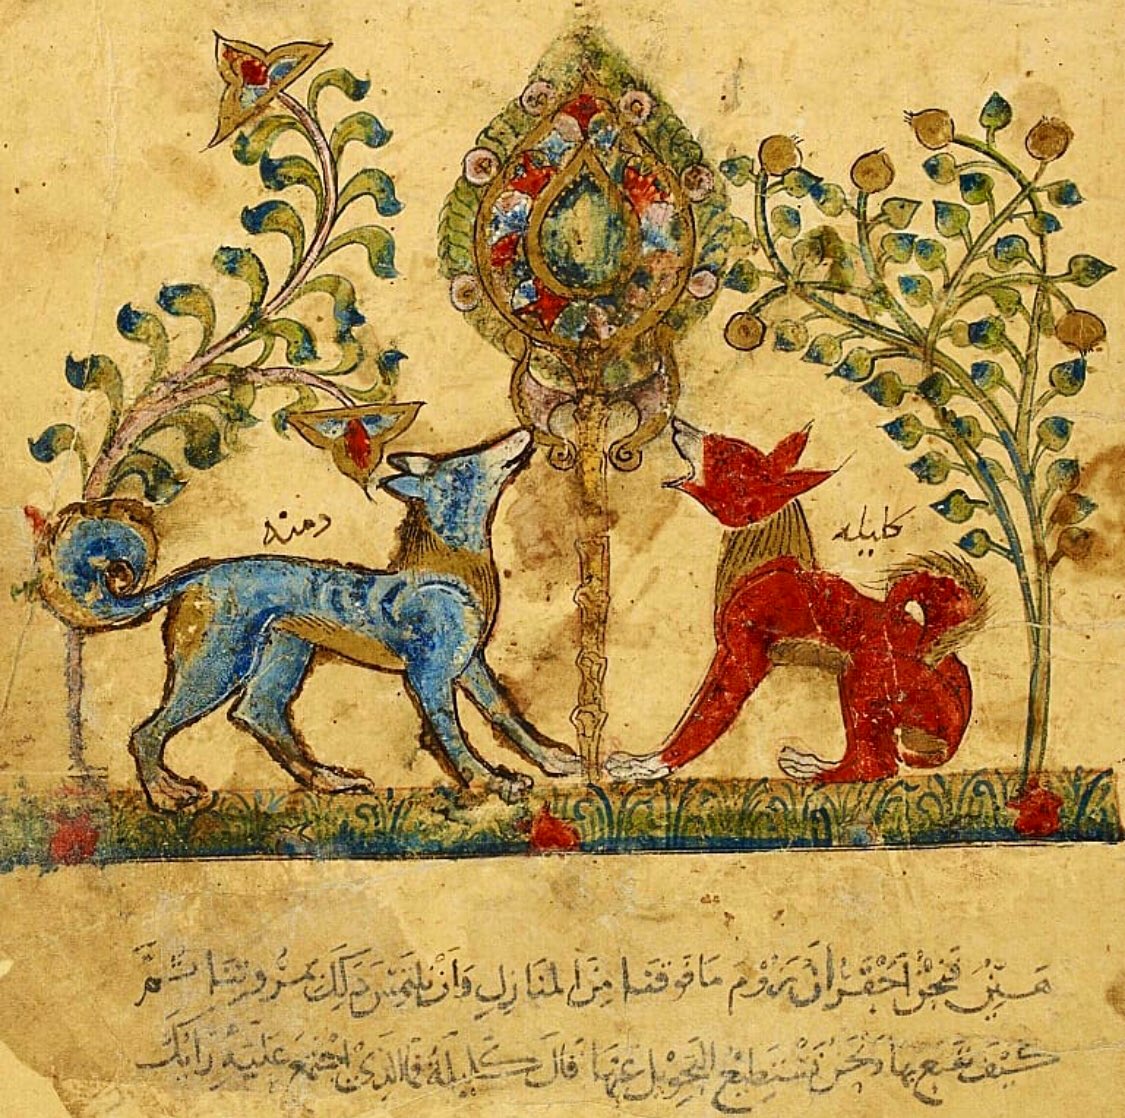 كليله
دمنه
هين فنحن احق ان نروم ما فوقنا من المنازل وان نلتمس ذلك بمروتنا ثم
كيف نقنع بها ونحن نستطيع التحويل عنها قال كليلة فما الذي اجتمع عليه رايك